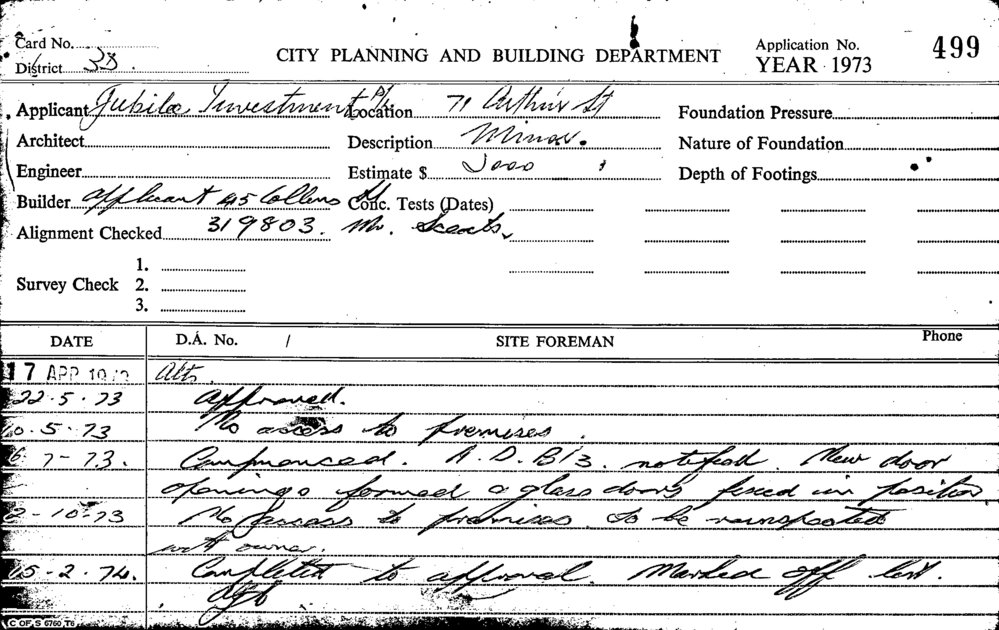 Card No.
District 33.
CITY PLANNING AND BUILDING DEPARTMENT
Application No. 499
YEAR 1973
Applicant Jubilee Investment P/L Location 71 Arthur St Foundation Pressure
Architect Description Minor. Nature of Foundation
Engineer Estimate $ 3000 Depth of Footings
Builder Applicant 45 Collins St Conc. Tests (Dates)
Alignment Checked 319803. Mr.
1.
Survey Check 2.
3.
DATE D.A. No. / SITE FOREMAN Phone
17 APR 197 Alts.
22.5.73 Approved.
10.5.73 No access to premises.
6 7-73. Commenced. A.D.B/3. notified. New door
openings formed & glass doors fixed in position
2-10-73 No access to premises. To be reinspected
with owner.
15-2.74. Completed to approval. Marked off list.
C OF S 6760 T8